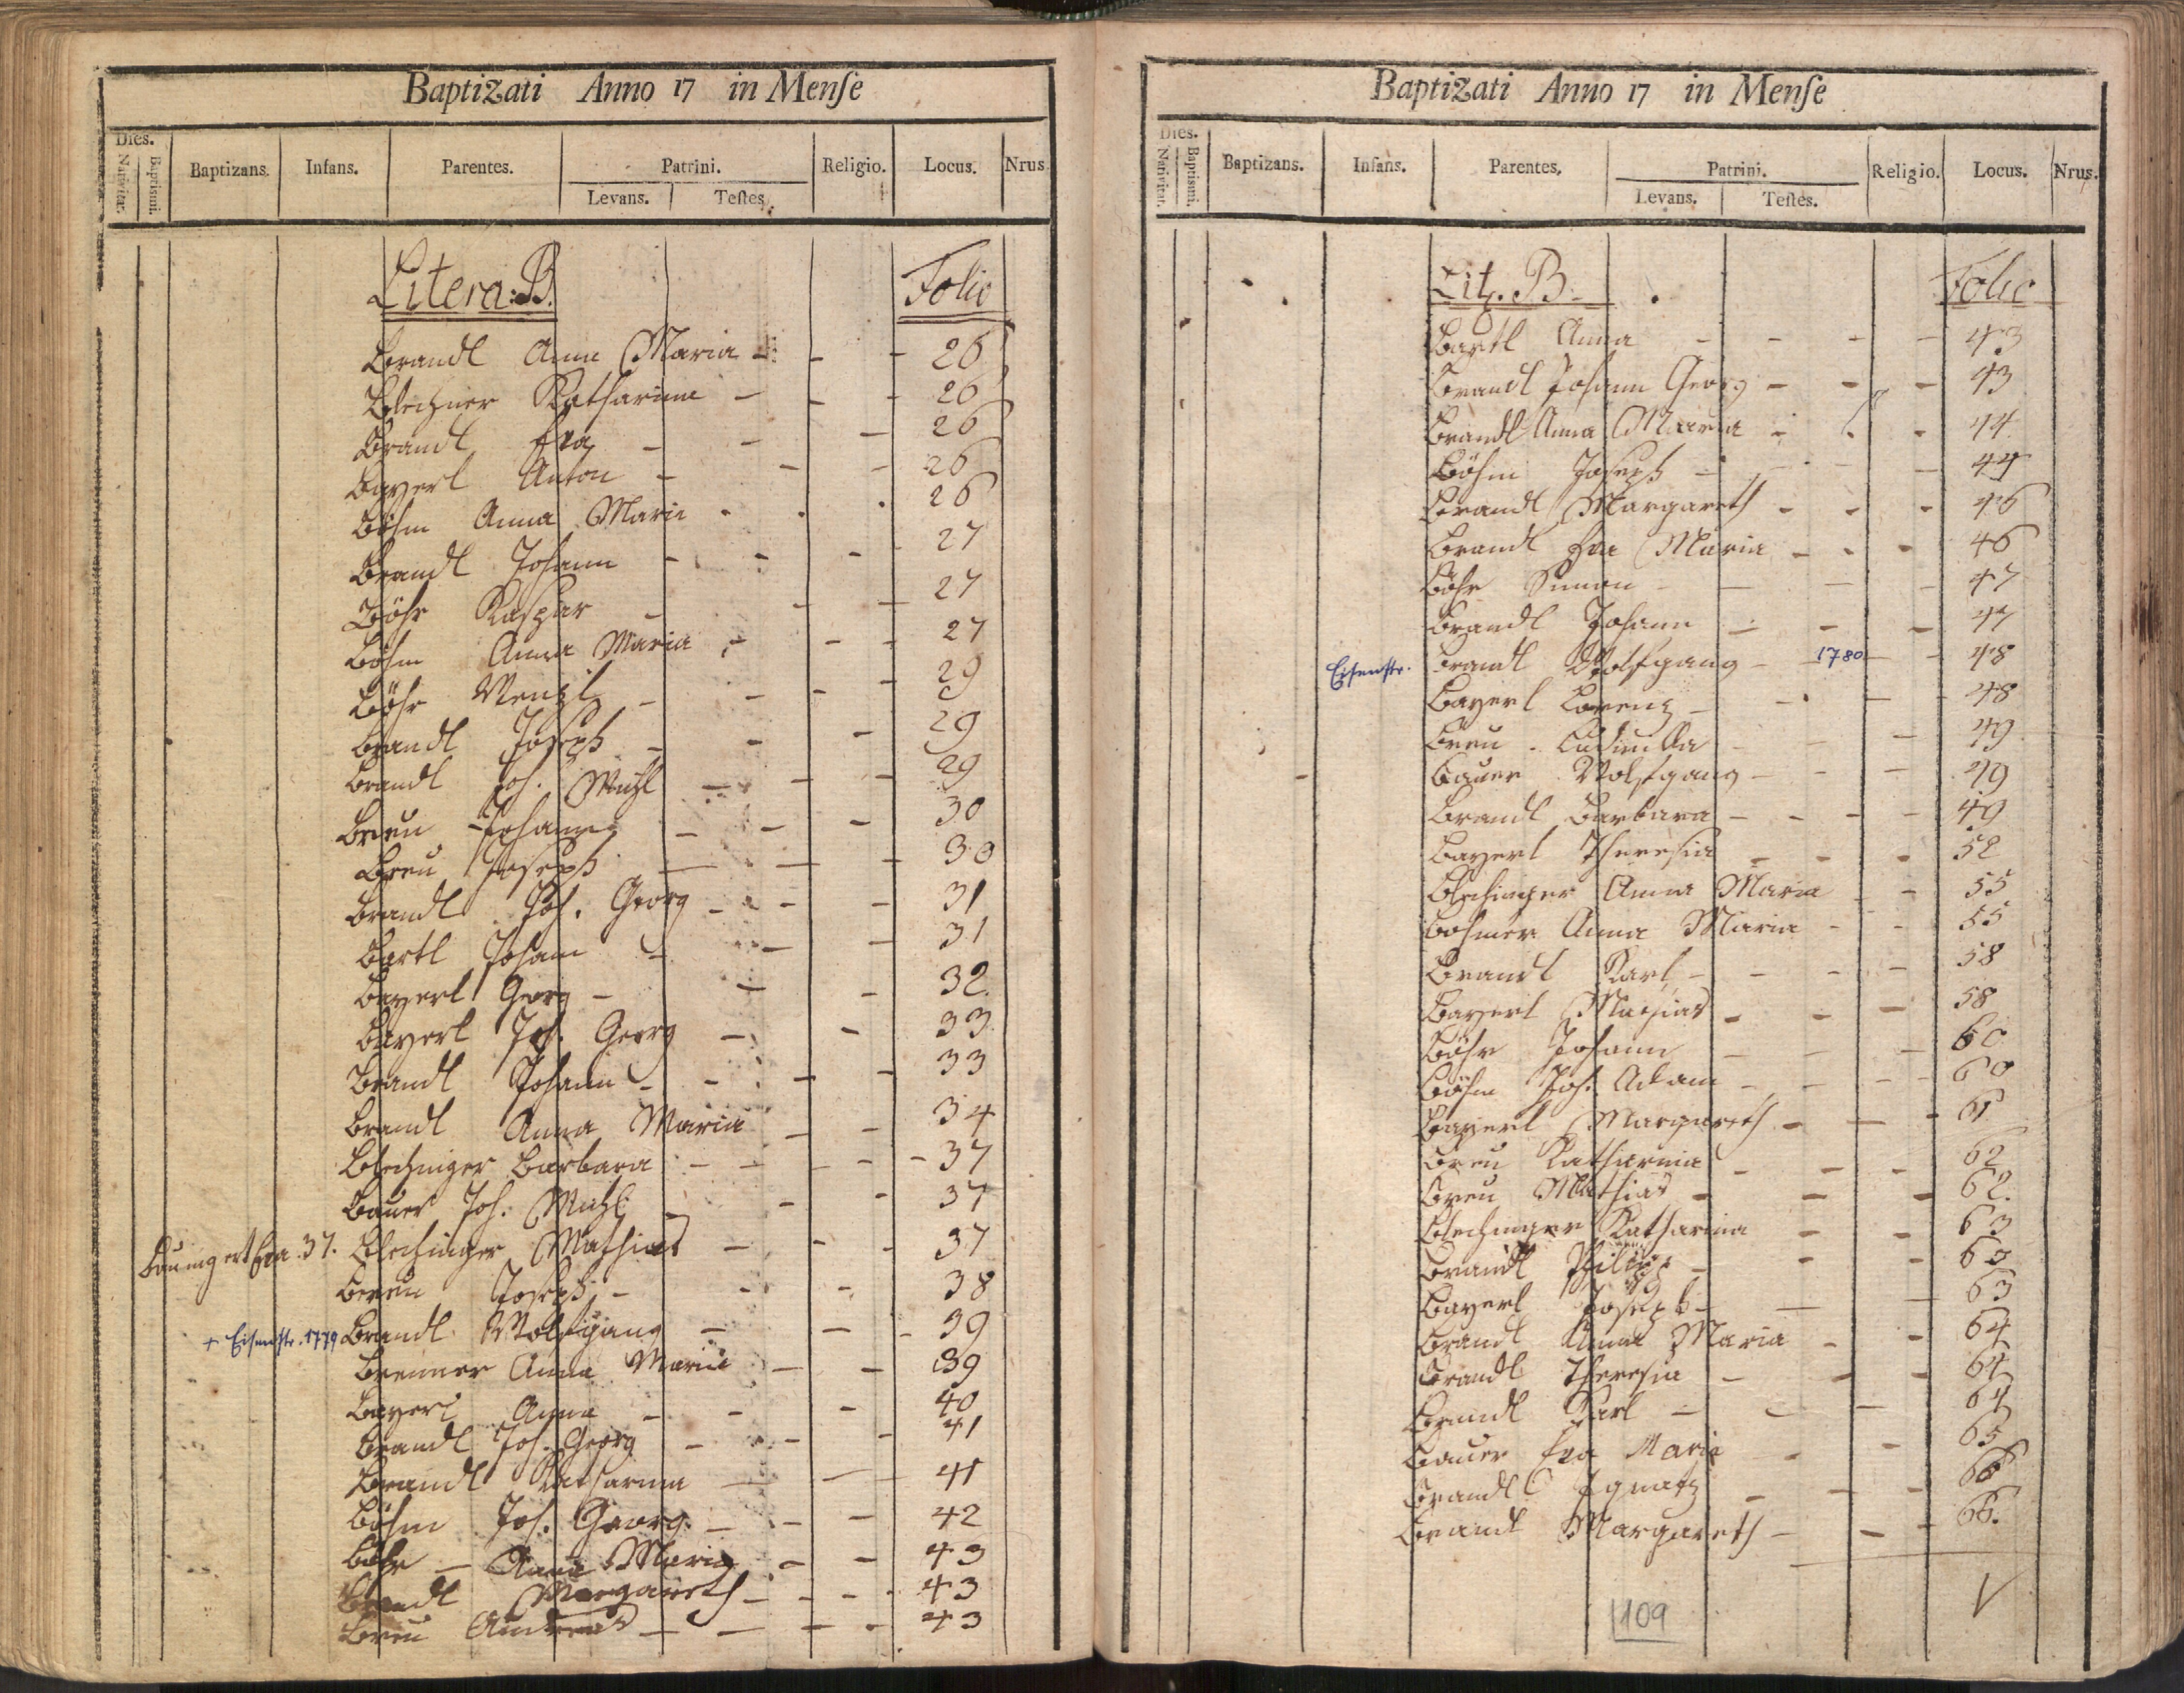 Baptizati Anno 17 in Menſe
Dies.
Nativitat. Baptismi.
Baptizans. Infans. Parentes. Patrini. Religio. Locus. Nrus
Levans. Teſtes.
Litera: B. Folio
Brandl Anna Maria - - - 26
Blechner Katharina - - - 26
Brandl Eva - - - 26
Bayerl Anton - - - 26
Böhm Anna Maria - - - 26
Brandl Johann - - - 27
Böhr Kaspar - - - 27
Böhm Anna Maria - - - 27
Böhr Wenzl - - - 29
Brandl Joseph - - - 29
Brandl Joh. Michl - - - 29
Breu Johann - - - 30
Breu Joseph - - - 30
Brandl Joh. Georg - - - 31
Bartl Johann - - - 31
Bayerl Georg - - - 32.
Bayerl Joh. Georg - - 33
Brandl Johann - - - - 33
Brandl Anna Maria - - 34
Blechinger Barbara - - - - 37
Bauer Joh. Michl - - - 37
Baumgert Eva. 37. Blechinger Mathias - - - 37
Breu Joseph - - - 38
+ Eisenstr. 1779 Brandl Wolfgang - - - 39
Brenner Anna Maria - - 39
Bayerl Anna - - - 40
Brandl Joh. Georg - - - 41
Brandl Katharina - - 41
Böhm Joh. Georg - - - 42
Böhr - Anna Maria - - 43
Brandl Margareth - - - - 43
Breu Andreas - - - - 43
Baptizati Anno 17 in Menſe
Dies.
Nativitat. Baptismi.
Baptizans. Infans. Parentes. Patrini. Religio. Locus. Nrus.
Levans. Teſtes.
Lit. B. Folio
Bartl Anna - - - - 43
Brandl Johann Georg - - - 43
Brandl Anna Maria - - - 44
Böhm Joseph - - - 44
Brandl Margareth - - - 46
Brandl Eva Maria - - - 46
Böhr Simon - - - - 47
Brandl Johann - - - 47
Eisenstr. Brandl Wolfgang - 1780 - 48
Bayerl Lorenz - - - 48
Breu Ludmilla - - - 49
Bauer Wolfgang - - - 49
Brandl Barbara - - - - 49
Bayerl Theresia - - - 52
Blechinger Anna Maria - - 55
Bohmer Anna Maria - - 55
Brandl Karl - - - - 58
Bayerl Mathias - - - 58
Böhr Johann - - - 60
Böhm Joh. Adam - - - 60
Bayerl Margareth - - - 61
Breu Katharina - - - 62
Breu Mathias - - - 62.
Blechinger Katharina - - 63
Brandl Philipp - - - 63
Bayerl Joseph - - - 63
Brandl Anna Maria - - 64
Brandl Theresia - - - 64
Brandl Karl - - - 64
Bauer Eva Maria - - 65
Brandl Ignatz - - - 66
Brandl Margareth - - - 66.
109